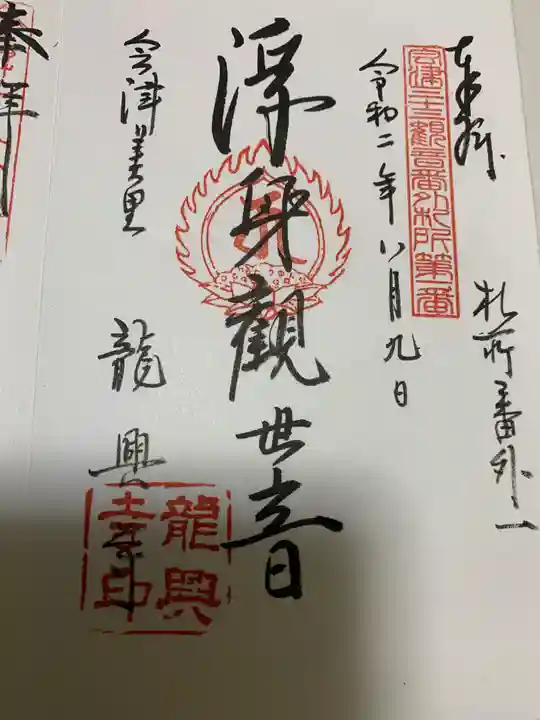 奉拝
札所番外一
會津三十三觀音番外札所第一番
令和二年八月九日
浮身觀世音
会津美里
龍興寺
龍興寺印
奉拝